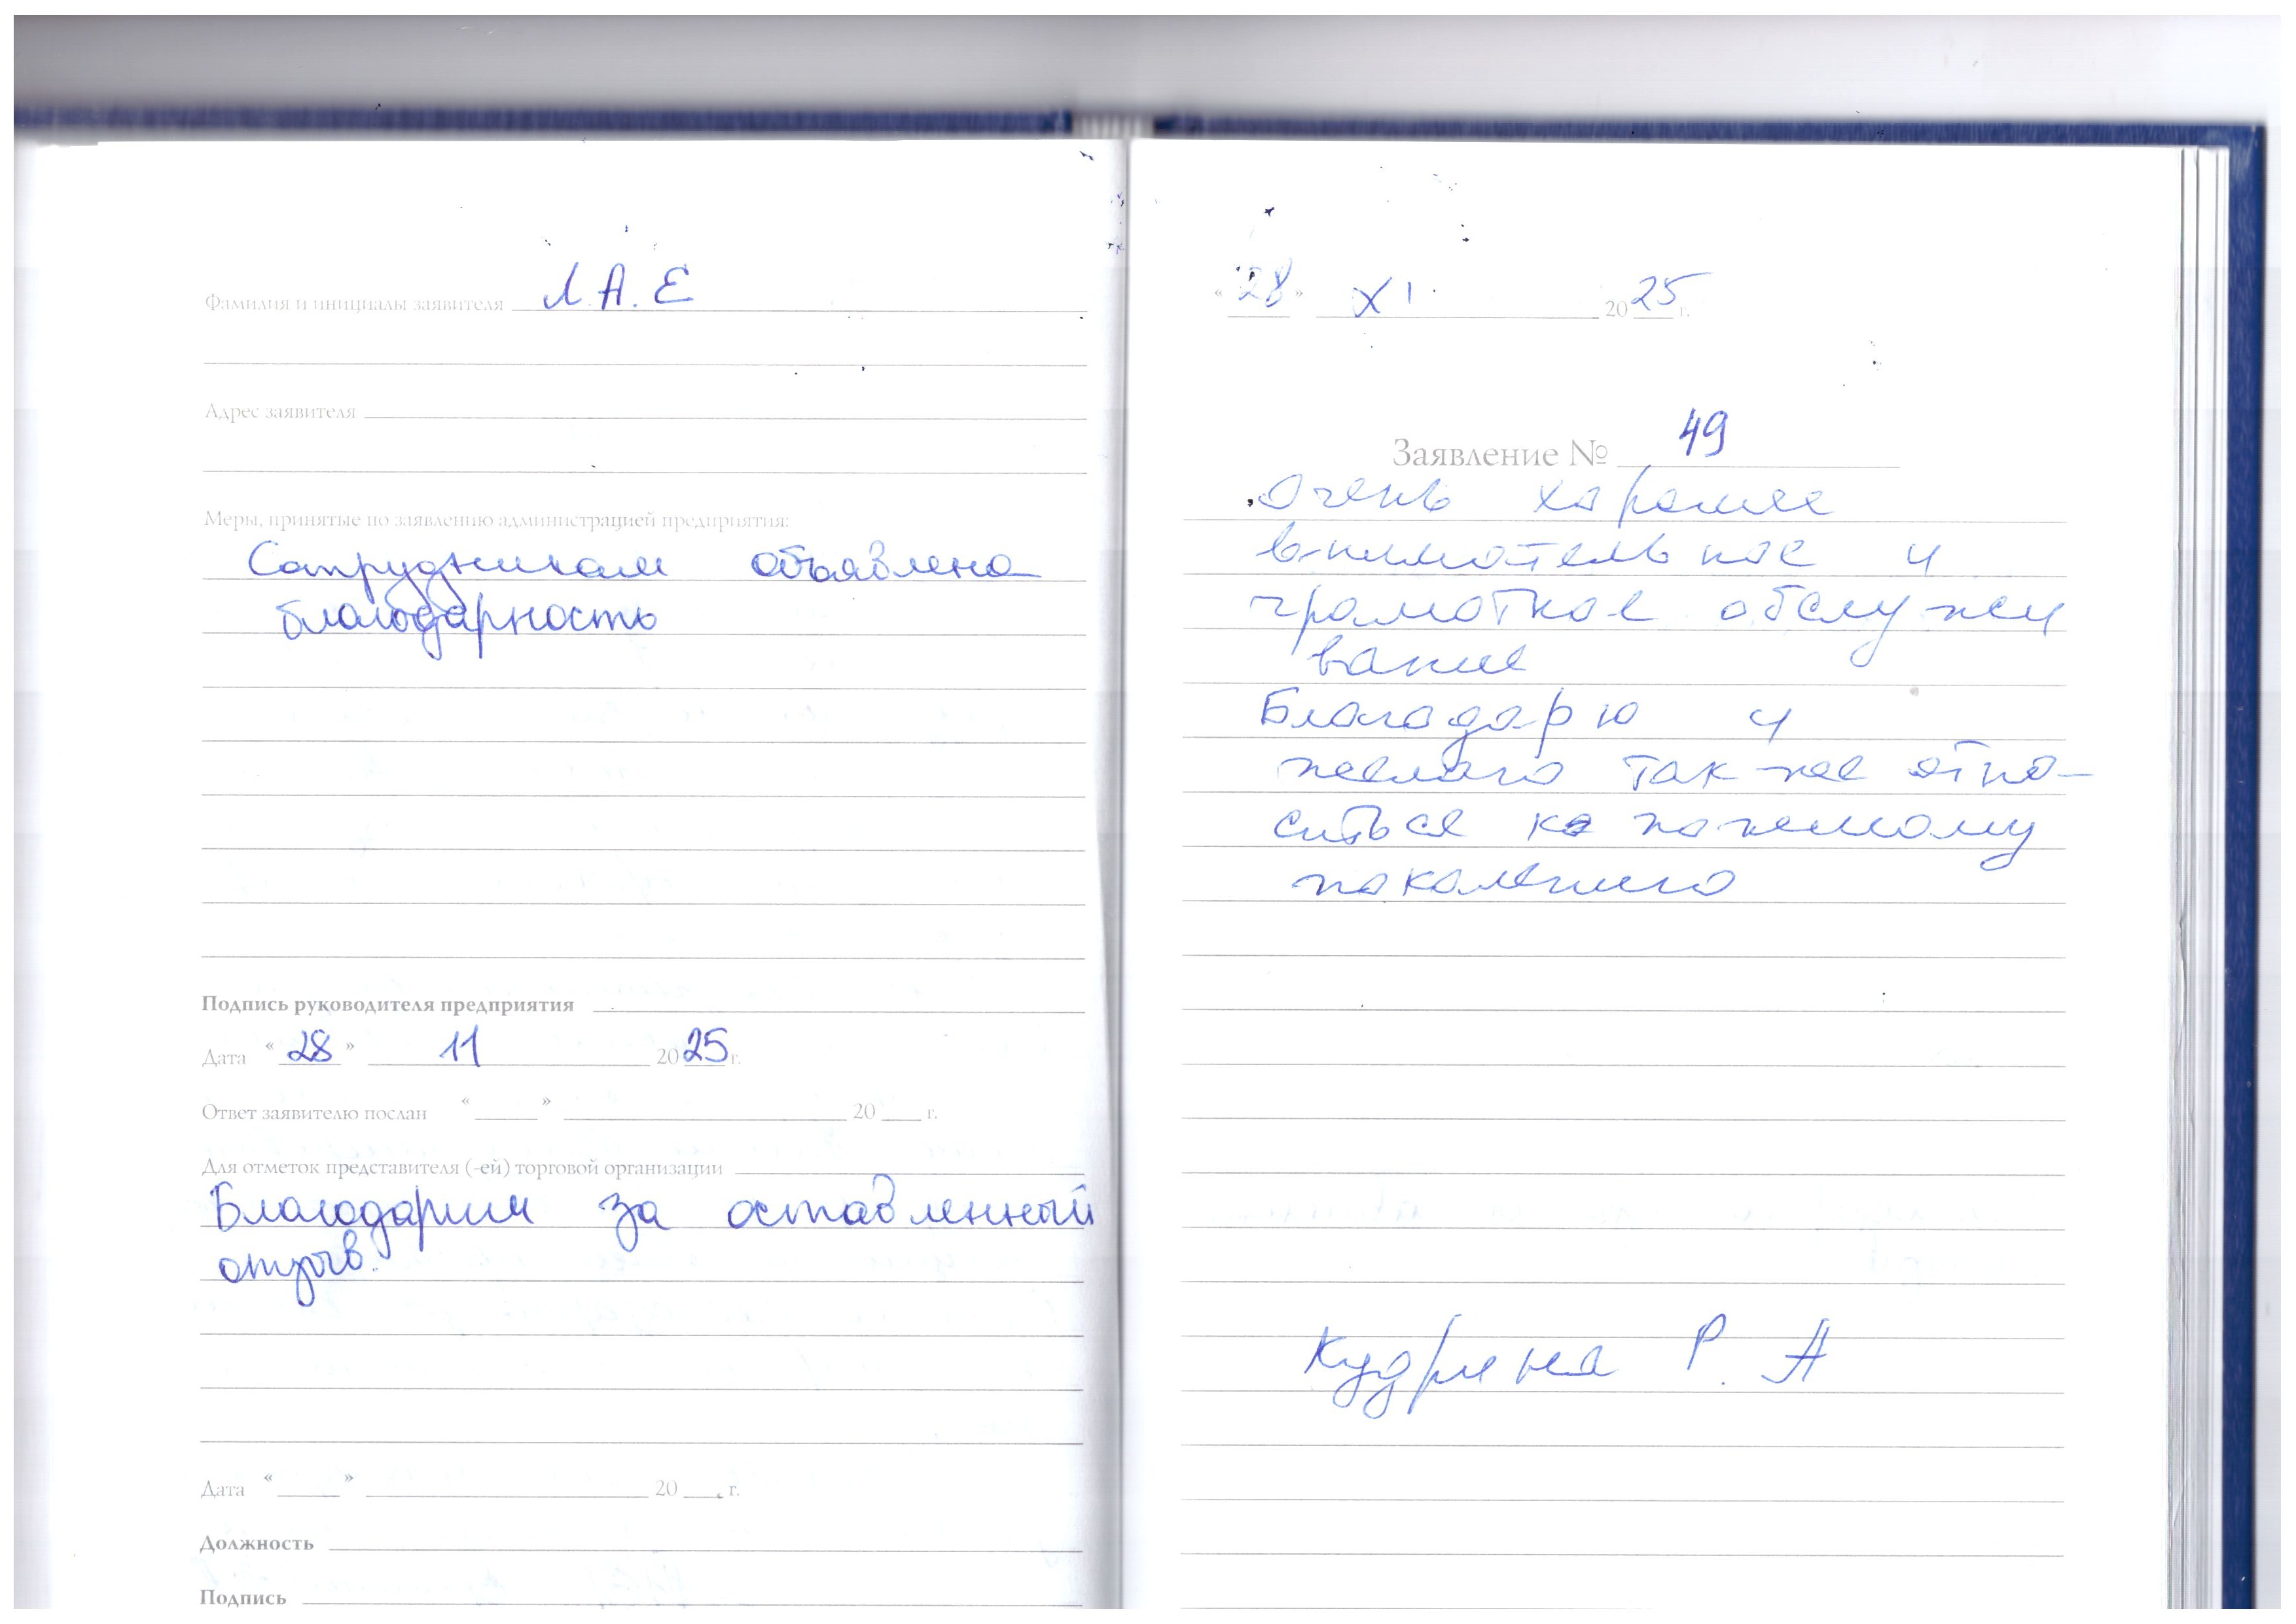 Фамилия и инициалы заявителя Л.А.Е
Адрес заявителя
Меры, принятые по заявлению администрацией предприятия:
Сотрудникам объявлена
благодарность
Подпись руководителя предприятия
Дата « 28 » 11 2025 г.
Ответ заявителю послан « » 20 г.
Для отметок представителя (-ей) торговой организации
Благодарим за оставленный
отзыв.
Дата « » 20 г.
Должность
Подпись
« 28 » XI 2025 г.
Заявление № 49
Очень хорошее
внимательное и
грамотное обслужи
вание
Благодарю и
желаю так же отно-
ситься к пожилому
поколению
Кудрина Р. А